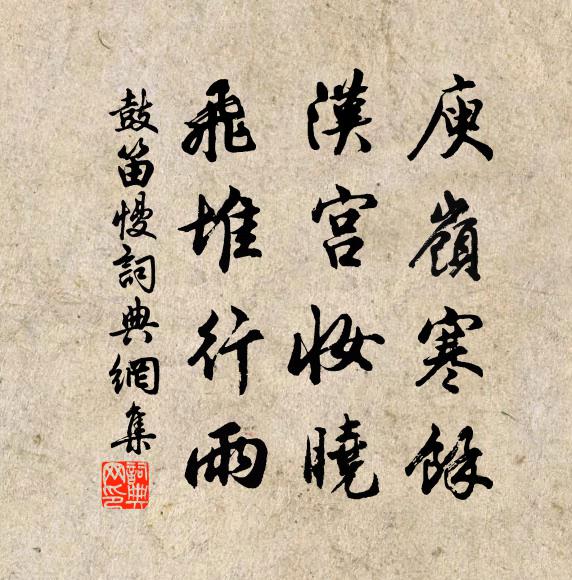 庾嶺寒餘
漢宮妝曉
飛堆行雨
鼓笛慢詞典網集
詞典
网印